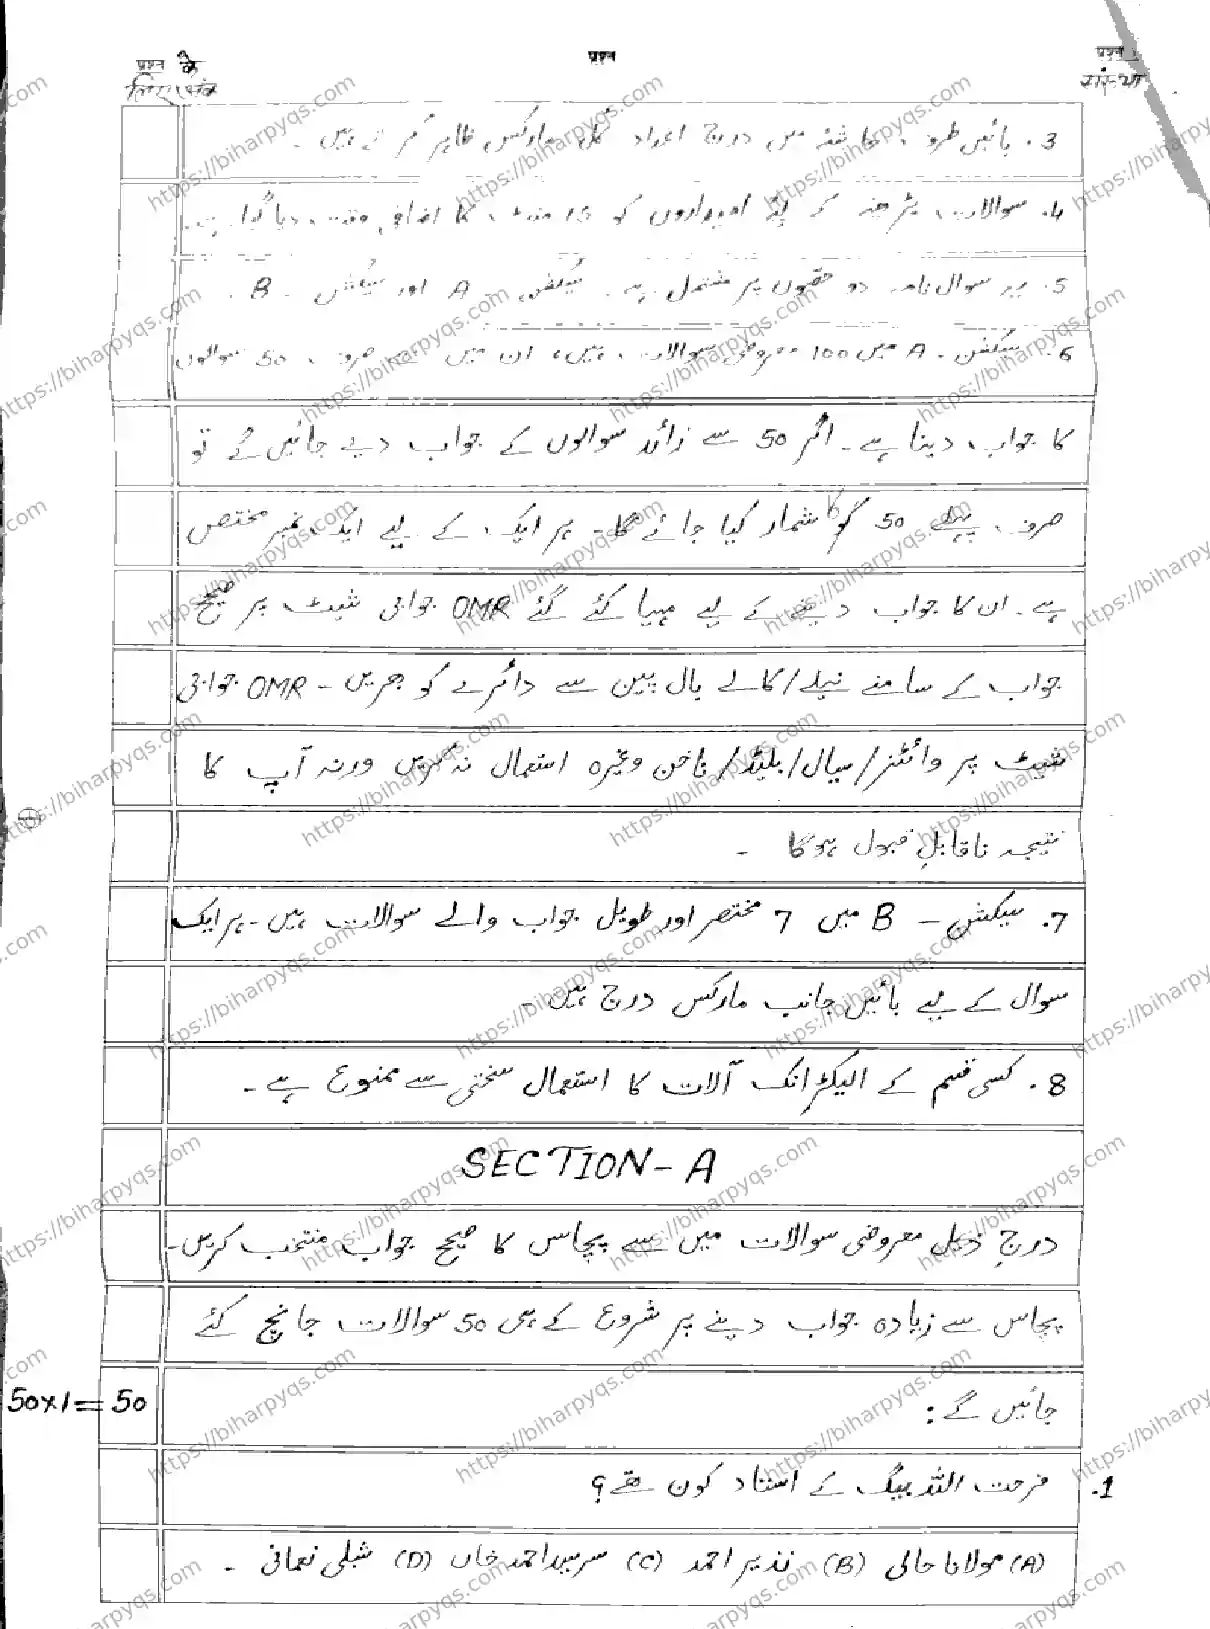 प्रश्न के
लिए अंक
प्रश्न
प्रश्न
संख्या
3. بائیں طرف حاشئے میں درج اعداد کل مارکس ظاہر کرتے ہیں ۔
4. سوالات پڑھنے کے لئے امیدواروں کو 15 منٹ کا اضافی وقت دیا گیا ہے۔
5. یہ سوال نامہ دو حصّوں پر مشتمل ہے۔ سیکشن - A اور سیکشن - B ۔
6. سیکشن - A میں 100 معروضی سوالات ہیں، ان میں سے صرف 50 سوالوں
کا جواب دینا ہے۔ اگر 50 سے زائد سوالوں کے جواب دیے جائیں گے تو
صرف پہلے 50 کو کا شمار کیا جائے گا۔ ہر ایک کے لیے ایک نمبر مختص
ہے۔ ان کا جواب دینے کے لیے مہیا کئے گئے OMR جوابی شیٹ پر صحیح
جواب کے سامنے نیلے/کالے بال پین سے دائرے کو بھریں - OMR جوابی
شیٹ پر وائٹنر/سیال/بلیڈ/ناخن وغیرہ استعمال نہ کریں ورنہ آپ کا
نتیجہ ناقابلِ قبول ہوگا ۔
7. سیکشن - B میں 7 مختصر اور طویل جواب والے سوالات ہیں۔ ہر ایک
سوال کے لیے بائیں جانب مارکس درج ہیں۔
8. کسی قسم کے الیکٹرانک آلات کا استعمال سختی سے ممنوع ہے ۔
SECTION-A
درج ذیل معروضی سوالات میں سے پچاس کا صحیح جواب منتخب کریں۔
پچاس سے زیادہ جواب دینے پر شروع کے ہی 50 سوالات جانچ کئے
جائیں گے :
50×1=50
1. فرحت اللہ بیگ کے استاد کون تھے؟
(A) مولانا حالی (B) نذیر احمد (C) سرسید احمد خاں (D) شبلی نعمانی ۔
https://biharpyqs.com